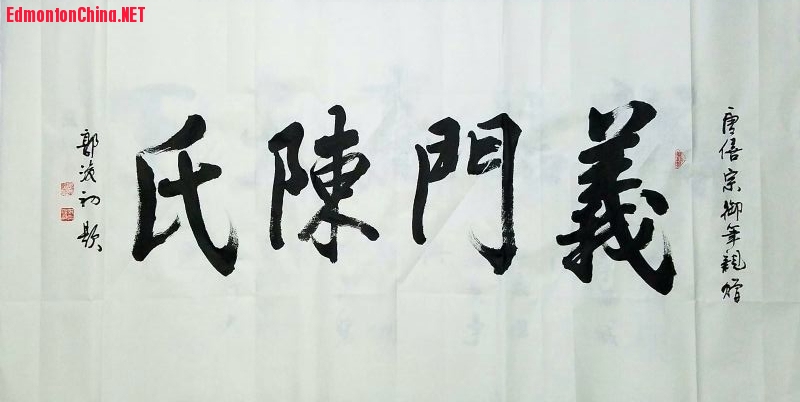 EdmontonChina.NET
唐僖宗御筆親贈
義門陳氏
郭浚初題